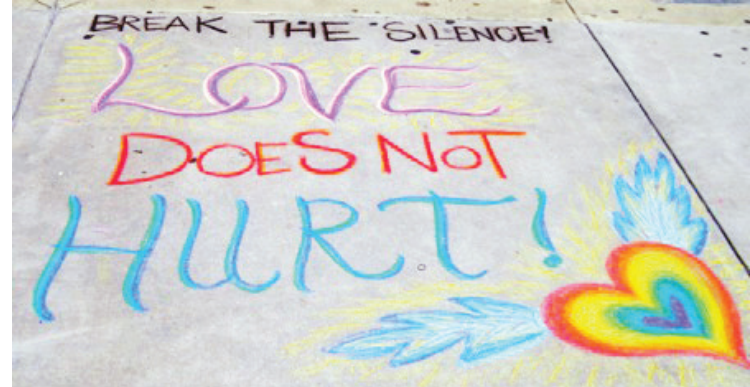 BREAK THE SILENCE!
LOVE
DOES NOT
HURT!